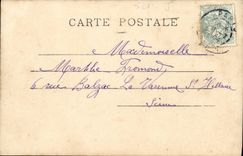 CARTE POSTALE
Mademoiselle
Marthe Fromond
6 rue Balzac La Varenne St Hilaire
Seine